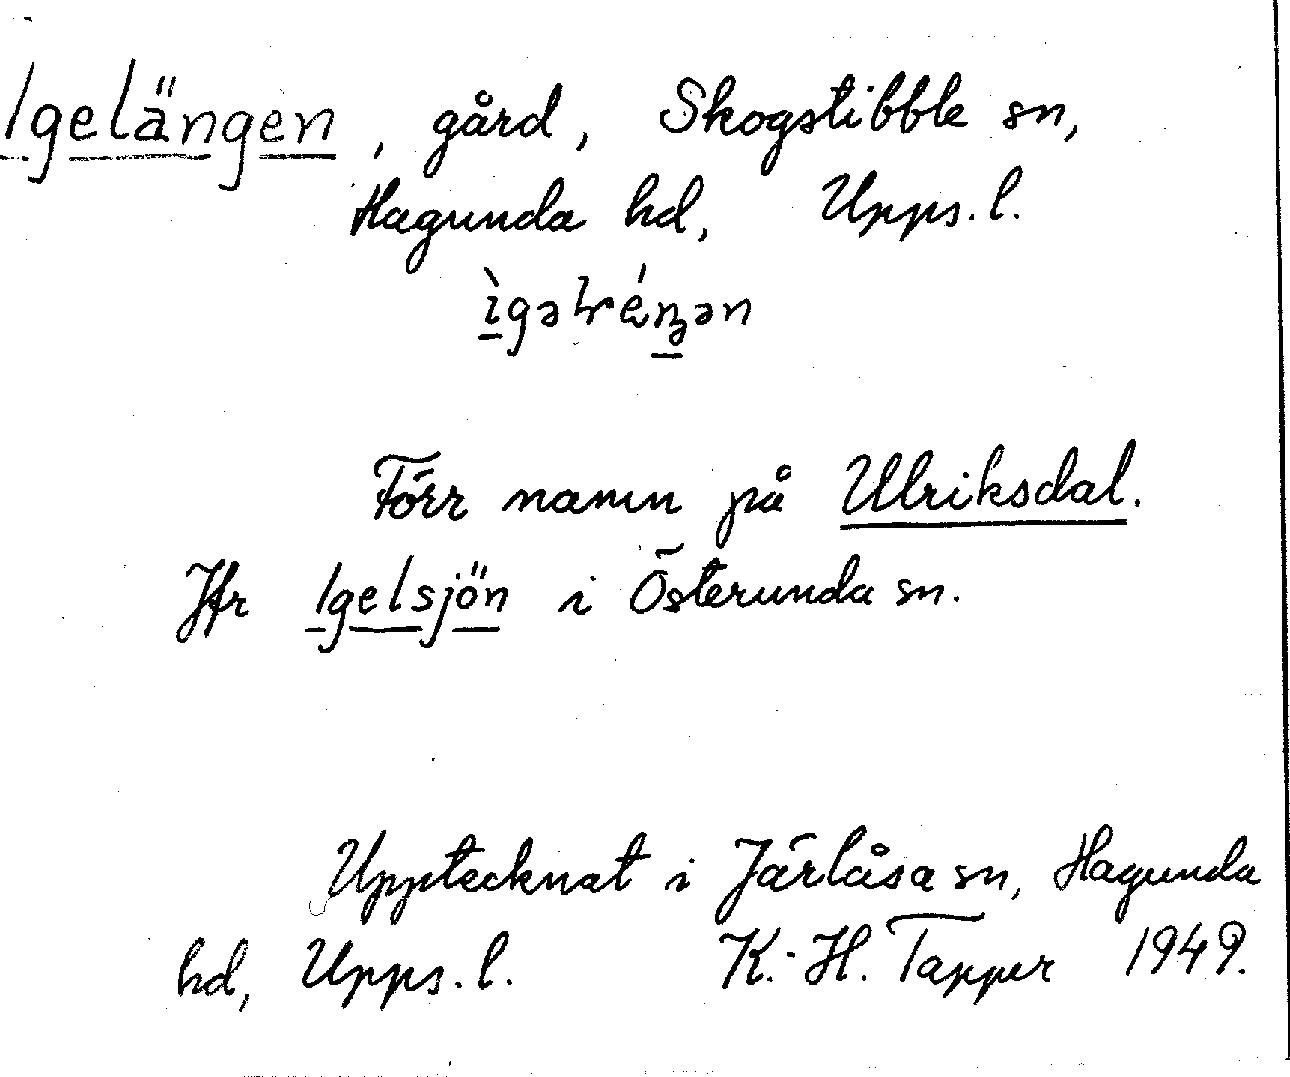 Igelängen, gård, Skogstibble sn,
Hagunda hd, Upps. l.
Förr namn på Ulriksdal.
Jfr Igelsjön i Österunda sn.
Upptecknat i Järlåsa sn, Hagunda
hd, Upps. l. K.-H. Tapper 1949.